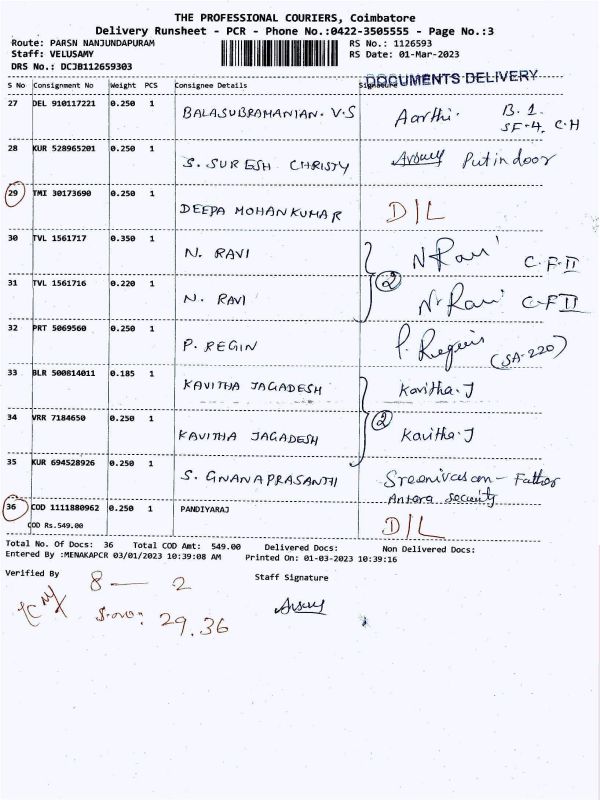 THE PROFESSIONAL COURIERS, Coimbatore
Delivery Runsheet - PCR - Phone No.:0422-3505555 - Page No.:3
Route: PARSN NANJUNDAPURAM RS No.: 1126593
Staff: VELUSAMY RS Date: 01-Mar-2023
DRS No.: DCJB112659303
DOCUMENTS DELIVERY
S No Consignment No Weight PCS Consignee Details Signature
27 DEL 910117221 0.250 1 BALASUBRAMANIAN. V.S Aarthi. B.1
SF-4, C.H
28 KUR 528965201 0.250 1 S. SURESH CHRISTY Put in door
29 TMI 30173690 0.250 1 DEEPA MOHANKUMAR D/L
30 TVL 1561717 0.350 1 N. RAVI N Ravi C.F-II
31 TVL 1561716 0.220 1 N. RAVI 2 N. Ravi C-F II
32 PRT 5069560 0.250 1 P. REGIN P. Regin (SA-220)
33 BLR 500814011 0.185 1 KAVITHA JAGADESH Kavitha.J
34 VRR 7184650 0.250 1 KAVITHA JAGADESH 2 Kavitha.J
35 KUR 694528926 0.250 1 S. GNANAPRASANTH Sreenivasan - Father
Antara security
36 COD 1111880962 0.250 1 PANDIYARAJ D/L
COD Rs.549.00
Total No. Of Docs: 36 Total COD Amt: 549.00 Delivered Docs: Non Delivered Docs:
Entered By :MENAKAPCR 03/01/2023 10:39:08 AM Printed On: 01-03-2023 10:39:16
Verified By 8 — 2 Staff Signature
S.no: 29.36